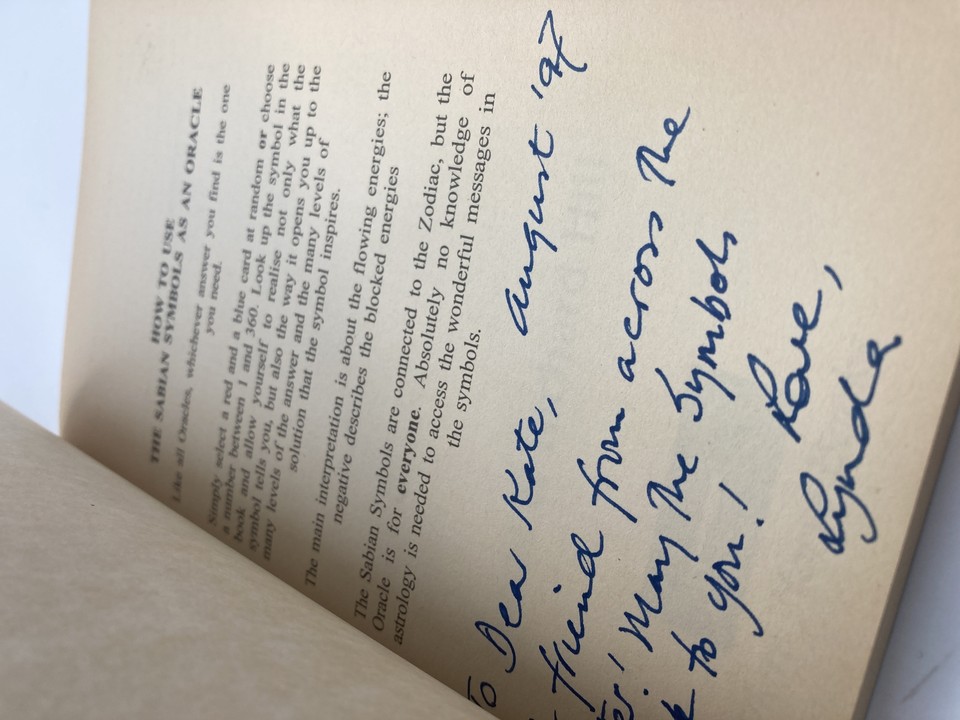 HOW TO USE
THE SABIAN SYMBOLS AS AN ORACLE
Like all Oracles, whichever answer you find is the one
you need.
Simply select a red and a blue card at random or choose
a number between 1 and 360. Look up the symbol in the
book and allow yourself to realise not only what the
symbol tells you, but also the way it opens you up to the
many levels of the answer and the many levels of
solution that the symbol inspires.
The main interpretation is about the flowing energies; the
negative describes the blocked energies
The Sabian Symbols are connected to the Zodiac, but the
Oracle is for everyone. Absolutely no knowledge of
astrology is needed to access the wonderful messages in
the symbols.
To Dear Kate, August '97
friend from across the
May the Symbols
to you!
Love,
Lynda